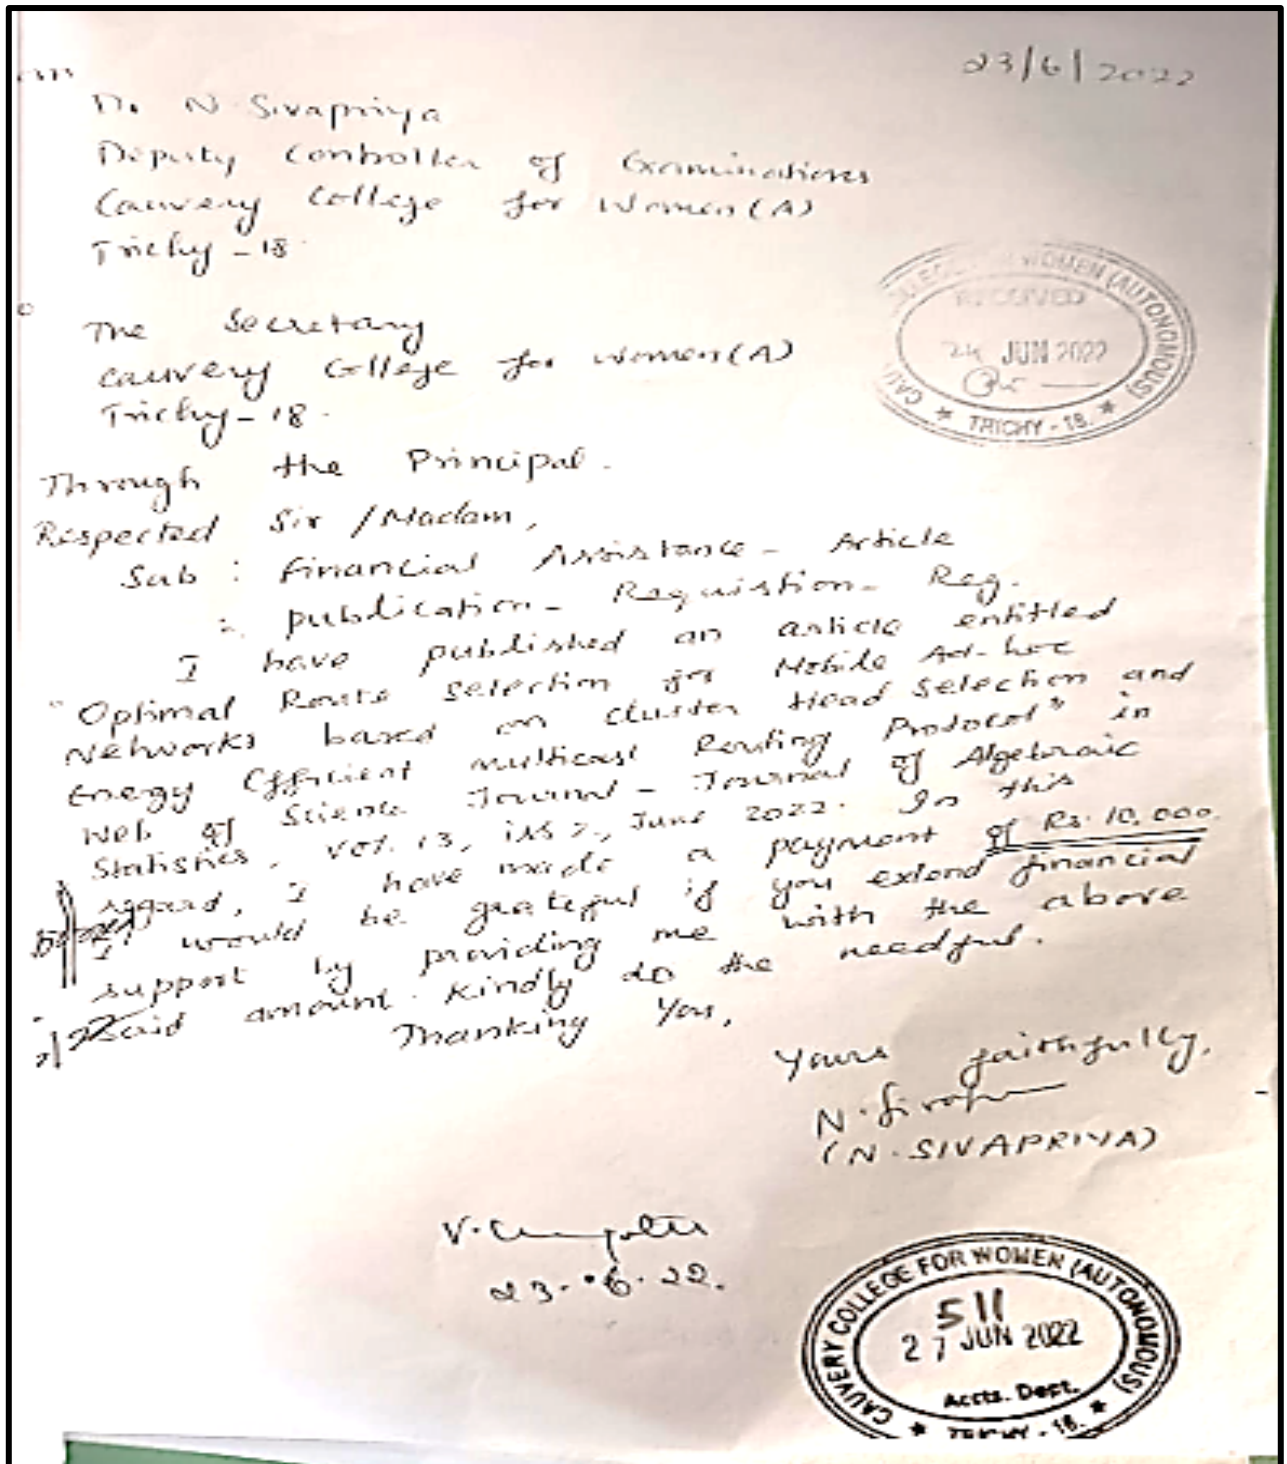 23/6/2022
Dr. N. Sivapriya
Deputy Controller of Examinations
Cauvery College for Women (A)
Trichy - 18.
The Secretary
Cauvery College for Women (A)
Trichy - 18.
COLLEGE FOR WOMEN (AUTONOMOUS)
RECEIVED
24 JUN 2022
★ TRICHY - 18. ★
Through the Principal.
Respected Sir / Madam,
Sub : Financial Assistance - Article
publication - Requistion - Reg.
I have published an article entitled
"Optimal Route Selection for Mobile Ad-hoc
Networks based on cluster Head Selection and
Energy Efficient multicast Routing Protocol" in
Web of Science Journal - Journal of Algebraic
Statistics, Vol. 13, iss 2, June 2022. In this
regard, I have made a payment of Rs. 10,000.
I would be grateful if you extend financial
support by providing me with the above
said amount. Kindly do the needful.
Thanking You,
Yours faithfully,
(N. SIVAPRIYA)
23.6.22.
CAUVERY COLLEGE FOR WOMEN (AUTONOMOUS)
511
27 JUN 2022
Accts. Dept.
★ TRICHY - 18. ★